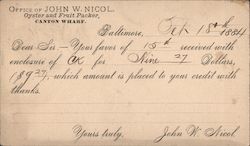 OFFICE OF JOHN W. NICOL,
Oyster and Fruit Packer,
CANTON WHARF.
Baltimore, Feb 18th 1884
Dear Sir.—Your favor of 15th received with
enclosure of Ck for Nine 27 Dollars,
($9 27), which amount is placed to your credit with
thanks.
Yours truly, John W. Nicol